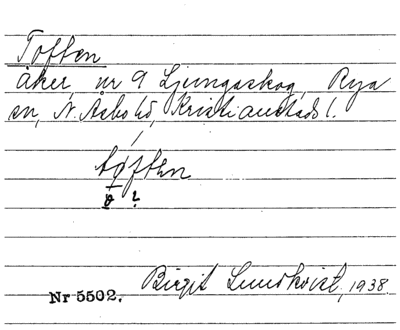 Toften
åker, nr 9 Ljungaskog, Rya
sn, N. Åsbo hd, Kristianstads l.
toften
o ?
Birgit Lundkvist, 1938.
Nr 5502.